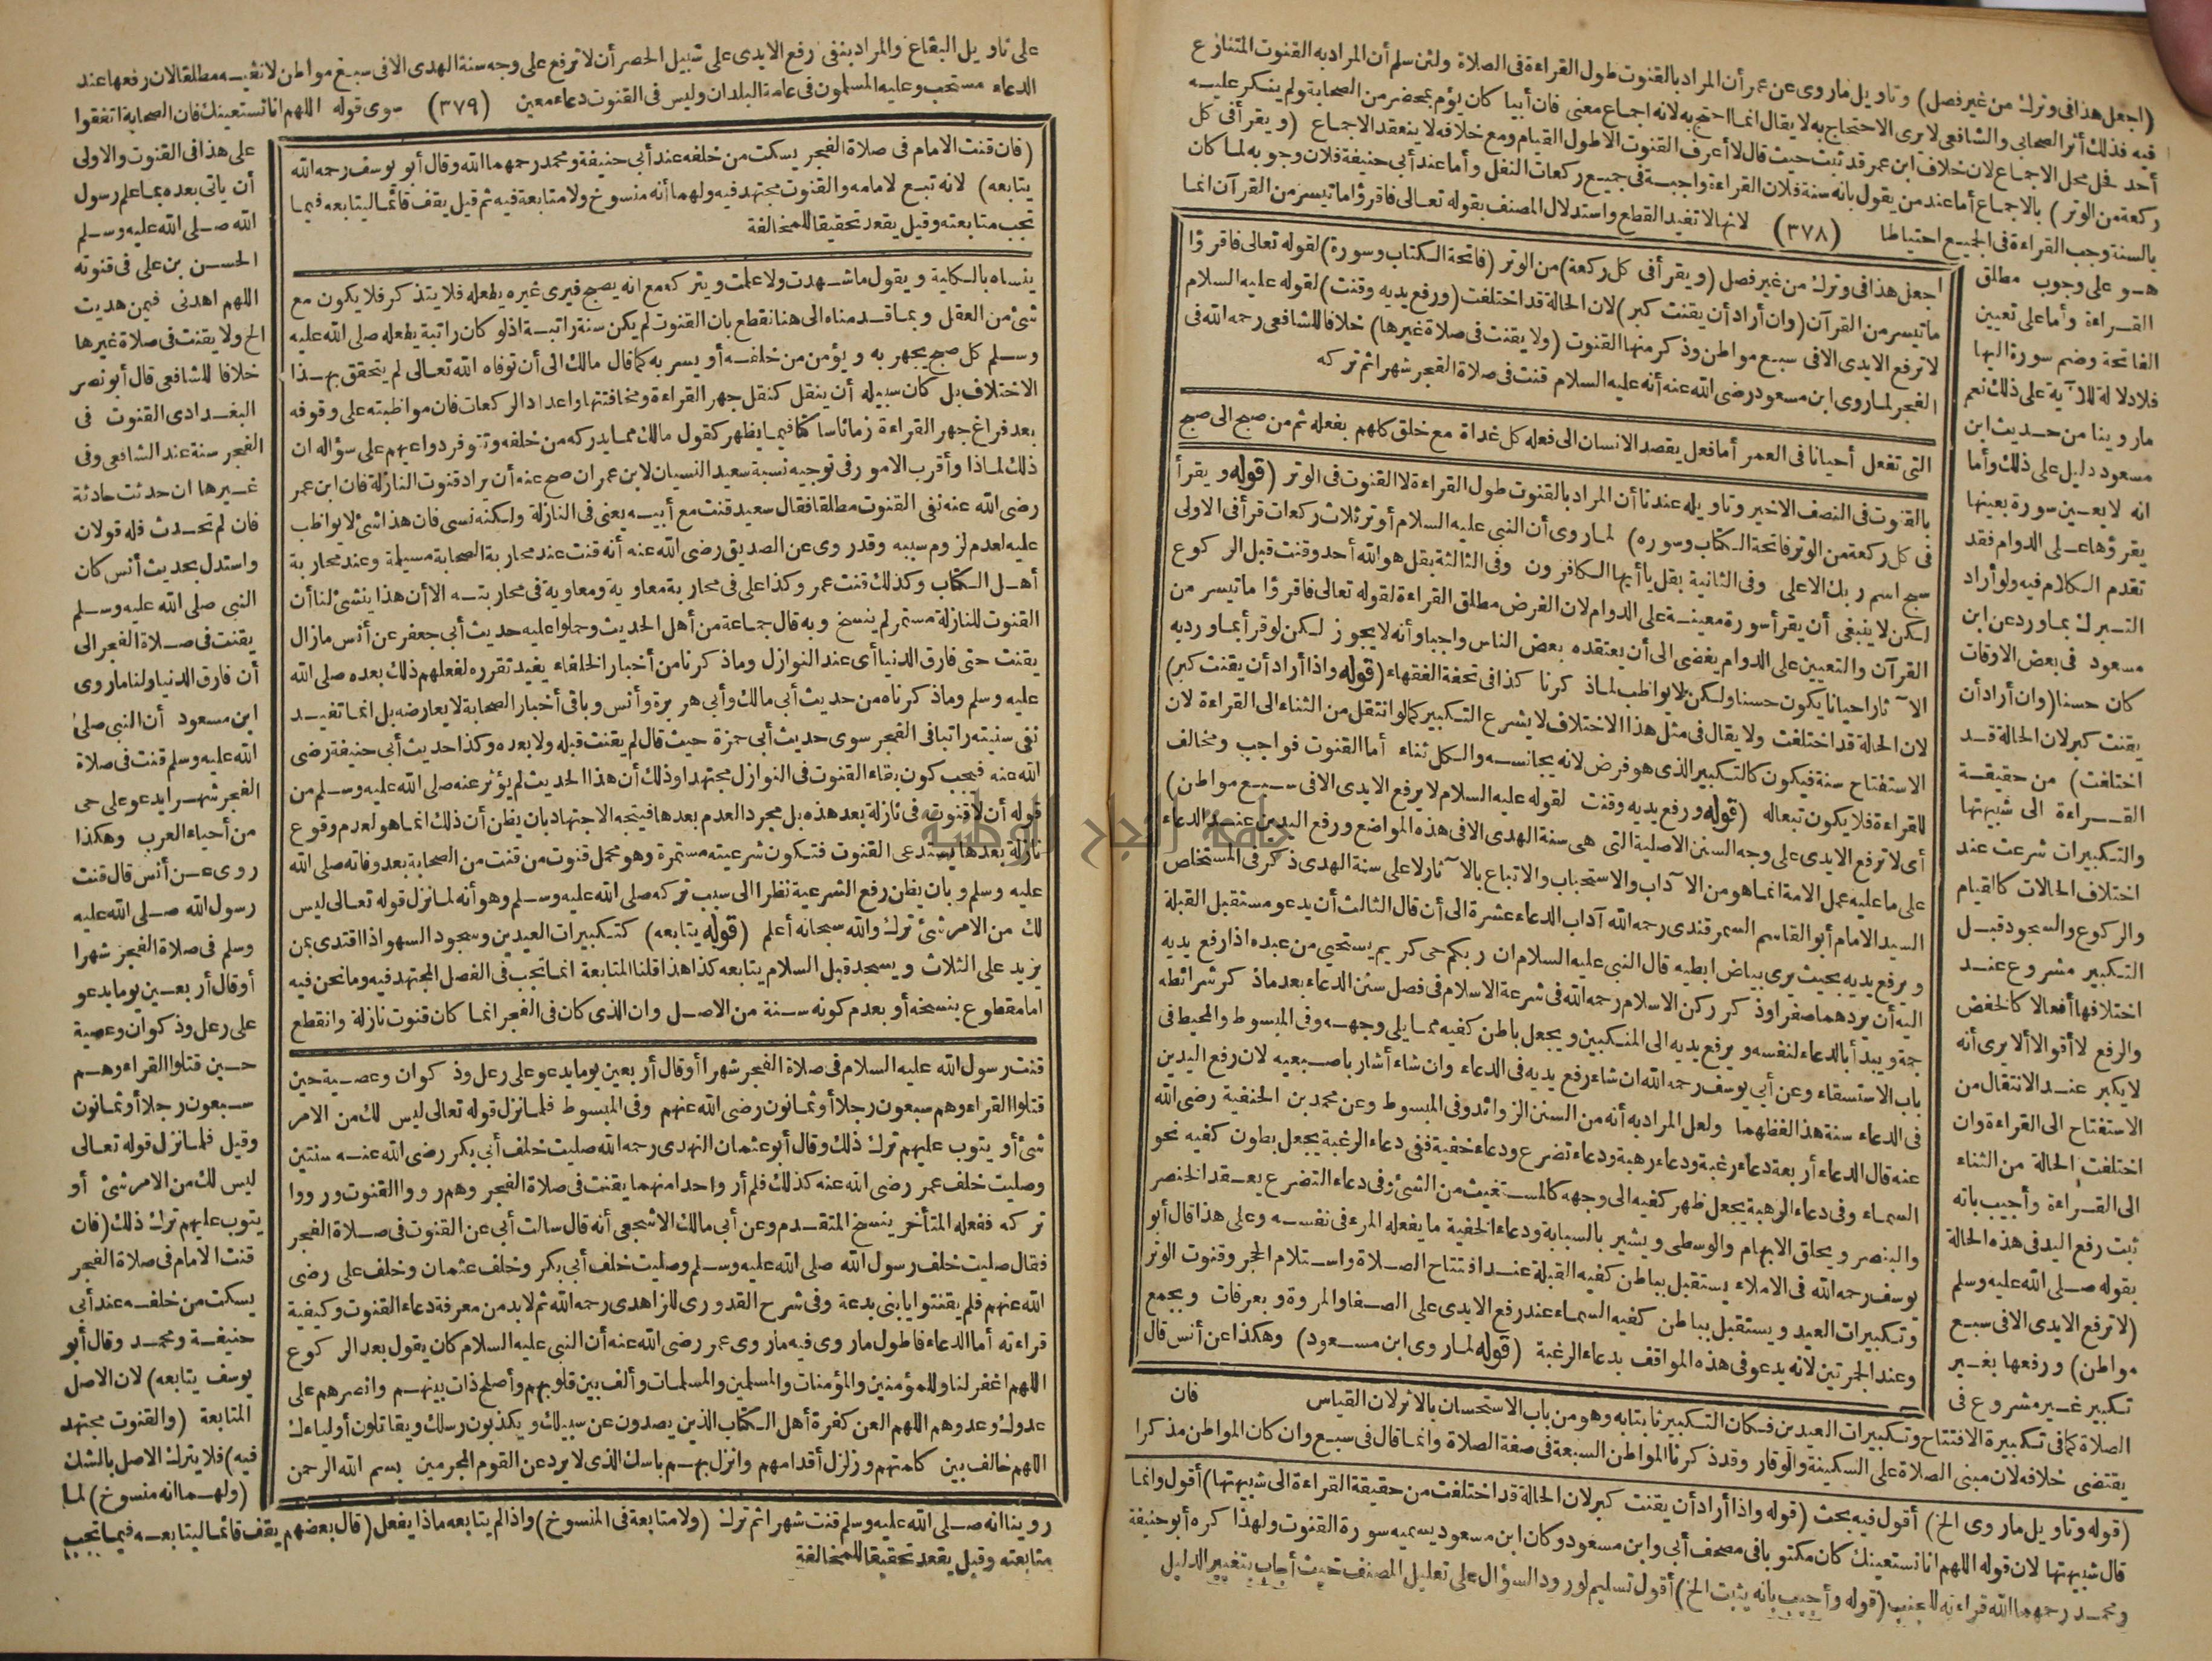 (اجعل هذا فى وترك من غير فصل) وتاويل ماروى عن عمر أن المراد بالقنوت طول القراءة فى الصلاة ولئن سلم أن المراد به القنوت المتنازع
فيه فذلك أثر الصحابى والشافعى لا يرى الاحتجاج به لا يقال انما احتج به لانه اجماع معنى فان أبيا كان يؤم بمحضر من الصحابة ولم ينكر عليه
أحد فحل محل الاجماع لان خلاف ابن عمر قد ثبت حيث قال لا أعرف القنوت الا طول القيام ومع خلافه لا ينعقد الاجماع (ويقرأ فى كل
ركعة من الوتر) بالاجماع أما عند من يقول بانه سنة فلان القراءة واجبة فى جميع ركعات النفل وأما عند أبى حنيفة فلان وجوبه لما كان
بالسنة وجب القراءة فى الجميع احتياطا (٣٧٨) لانها لا تفيد القطع واستدلال المصنف بقوله تعالى فاقرؤا ما تيسر من القرآن انما
هو على وجوب مطلق
القراءة وأما على تعيين
الفاتحة وضم سورة اليها
فلا دلالة للآية على ذلك نعم
ماروينا من حديث ابن
مسعود دليل على ذلك وأما
انه لا يعين سورة بعينها
يقرؤها على الدوام فقد
تقدم الكلام فيه ولو أراد
التبرك بما ورد عن ابن
مسعود فى بعض الاوقات
كان حسنا (وان أراد أن
يقنت كبر لان الحالة قد
اختلفت) من حقيقة
القراءة الى شبهتها
والتكبيرات شرعت عند
اختلاف الحالات كالقيام
والركوع والسجود قبل
التكبير مشروع عند
اختلافها أفعالا كالخفض
والرفع لا أقوالا ألا يرى أنه
لا يكبر عند الانتقال من
الاستفتاح الى القراءة وان
اختلفت الحالة من الثناء
الى القراءة وأجيب بانه
ثبت رفع اليد فى هذه الحالة
بقوله صلى الله عليه وسلم
(لا ترفع الايدى الا فى سبع
مواطن) ورفعها بغير
تكبير غير مشروع فى
اجعل هذا فى وترك من غير فصل (ويقرأ فى كل ركعة) من الوتر (فاتحة الكتاب وسورة) لقوله تعالى فاقرؤا
ما تيسر من القرآن (وان أراد أن يقنت كبر) لان الحالة قد اختلفت (ورفع يديه وقنت) لقوله عليه السلام
لا ترفع الايدى الا فى سبع مواطن وذكر منها القنوت (ولا يقنت فى صلاة غيرها) خلافا للشافعى رحمه الله فى
الفجر لما روى ابن مسعود رضى الله عنه أنه عليه السلام قنت فى صلاة الفجر شهرا ثم تركه
التى تفعل أحيانا فى العمر أما فعل يقصد الانسان الى فعله كل غداة مع خلق كلهم يفعله ثم من صبح الى صبح
بالقنوت فى النصف الاخير وتاويله عندنا أن المراد بالقنوت طول القراءة لا القنوت فى الوتر (قوله ويقرأ
فى كل ركعة من الوتر فاتحة الكتاب وسوره) لما روى أن النبى عليه السلام أوتر بثلاث ركعات قرأ فى الاولى
سبح اسم ربك الاعلى وفى الثانية بقل يا أيها الكافرون وفى الثالثة بقل هو الله أحد وقنت قبل الركوع
لكن لا ينبغى أن يقرأ سورة معينة على الدوام لان الفرض مطلق القراءة لقوله تعالى فاقرؤا ما تيسر من
القرآن والتعيين على الدوام يفضى الى أن يعتقده بعض الناس واجبا وأنه لا يجوز لكن لو قرأ بما ورد به
الآثار احيانا يكون حسنا ولكن لا يواظب لما ذكرنا كذا فى تحفة الفقهاء (قوله واذا أراد أن يقنت كبر)
لان الحالة قد اختلفت ولا يقال فى مثل هذا الاختلاف لا يشرع التكبير كما لو انتقل من الثناء الى القراءة لان
الاستفتاح سنة فيكون كالتكبير الذى هو فرض لانه يجانسه والكل ثناء أما القنوت فواجب ومخالف
للقراءة فلا يكون تبعا له (قوله ورفع يديه وقنت لقوله عليه السلام لا يرفع الايدى الا فى سبع مواطن)
أى لا ترفع الايدى على وجه السنن الاصلية التى هى سنة الهدى الا فى هذه المواضع ورفع اليدين عند الدعاء
على ما عليه عمل الامة انما هو من الآداب والاستحباب والاتباع بالآثار لا على سنة الهدى ذكر فى المستخلص
السيد الامام أبو القاسم السمرقندى رحمه الله آداب الدعاء عشرة الى أن قال الثالث أن يدعو مستقبل القبلة
ويرفع يديه بحيث يرى بياض ابطيه قال النبى عليه السلام ان ربكم حى كريم يستحيى من عبده اذا رفع يديه
اليه أن يردهما صفرا وذكر ركن الاسلام رحمه الله فى شرعة الاسلام فى فصل سنن الدعاء بعد ما ذكر شرائطه
جمة ويبدأ بالدعاء لنفسه ويرفع يديه الى المنكبين ويجعل باطن كفيه مما يلى وجهه وفى المبسوط والمحيط فى
باب الاستسقاء وعن أبى يوسف رحمه الله ان شاء رفع يديه فى الدعاء وان شاء أشار باصبعيه لان رفع اليدين
فى الدعاء سنة هذا لفظهما ولعل المراد به أنه من السنن الزوائد وفى المبسوط وعن محمد بن الحنفية رضى الله
عنه قال الدعاء أربعة دعاء رغبة ودعاء رهبة ودعاء تضرع ودعاء خفية ففى دعاء الرغبة يجعل بطون كفيه نحو
السماء وفى دعاء الرهبة يجعل ظهر كفيه الى وجهه كالمستغيث من الشئ وفى دعاء التضرع يعقد الخنصر
والبنصر ويحلق الابهام والوسطى ويشير بالسبابة ودعاء الخفية ما يفعله المرء فى نفسه وعلى هذا قال أبو
يوسف رحمه الله فى الاملاء يستقبل بباطن كفيه القبلة عند افتتاح الصلاة واستلام الحجر وقنوت الوتر
وتكبيرات العيد ويستقبل بباطن كفيه السماء عند رفع الايدى على الصفا والمروة وبعرفات وبجمع
وعند الجمرتين لانه يدعو فى هذه المواقف بدعاء الرغبة (قوله لما روى ابن مسعود) وهكذا عن أنس قال
فان
الصلاة كما فى تكبيرة الافتتاح وتكبيرات العيدين فكان التكبير ثابتا به وهو من باب الاستحسان بالاثر لان القياس
يقتضى خلافه لان مبنى الصلاة على السكينة والوقار وقد ذكرنا المواطن السبعة فى صفة الصلاة وانما قال فى سبع وان كان المواطن مذكرا
(قوله وتاويل ماروى الخ) أقول فيه بحث (قوله واذا أراد أن يقنت كبر لان الحالة قد اختلفت من حقيقة القراءة الى شبهتها) أقول وانما
قال شبهتها لان قوله اللهم انا نستعينك كان مكتوبا فى مصحف أبى وابن مسعود وكان ابن مسعود يسميه سورة القنوت ولهذا كره أبو حنيفة
ومحمد رحمهما الله قراءته للجنب (قوله وأجيب بانه يثبت الخ) أقول تسليم لورود السؤال على تعليل المصنف حيث أجاب بتغيير الدليل
على تاويل البقاع والمراد بنفى رفع الايدى على سبيل الحصر أن لا ترفع على وجه سنة الهدى الا فى سبع مواطن لا نفيه مطلقا لان رفعها عند
الدعاء مستحب وعليه المسلمون فى عامة البلدان وليس فى القنوت دعاء معين (٣٧٩) سوى قوله اللهم انا نستعينك فان الصحابة اتفقوا
على هذا فى القنوت والاولى
أن ياتى بعده بما علم رسول
الله صلى الله عليه وسلم
الحسن بن على فى قنوته
اللهم اهدنى فيمن هديت
الخ ولا يقنت فى صلاة غيرها
خلافا للشافعى قال أبو نصر
البغدادى القنوت فى
الفجر سنة عند الشافعى وفى
غيرها ان حدثت حادثة
فان لم تحدث فله قولان
واستدل بحديث أنس كان
النبى صلى الله عليه وسلم
يقنت فى صلاة الفجر الى
أن فارق الدنيا ولنا ماروى
ابن مسعود أن النبى صلى
الله عليه وسلم قنت فى صلاة
الفجر شهرا يدعو على حى
من أحياء العرب وهكذا
روى عن أنس قال قنت
رسول الله صلى الله عليه
وسلم فى صلاة الفجر شهرا
أو قال أربعين يوما يدعو
على رعل وذكوان وعصية
حين قتلوا القراء وهم
سبعون رجلا أو ثمانون
وقيل فلما نزل قوله تعالى
ليس لك من الامر شئ أو
يتوب عليهم ترك ذلك (فان
قنت الامام فى صلاة الفجر
يسكت من خلفه عند أبى
حنيفة ومحمد وقال أبو
يوسف يتابعه) لان الاصل
المتابعة (والقنوت مجتهد
فيه) فلا يترك الاصل بالشك
(ولهما انه منسوخ) لما
(فان قنت الامام فى صلاة الفجر يسكت من خلفه عند أبى حنيفة ومحمد رحمهما الله وقال أبو يوسف رحمه الله
يتابعه) لانه تبع لامامه والقنوت مجتهد فيه ولهما أنه منسوخ ولا متابعة فيه ثم قيل يقف قائما ليتابعه فيما
تجب متابعته وقيل يقعد تحقيقا للمخالفة
ينساه بالكلية ويقول ما شهدت ولا علمت ويتركه مع انه يصبح فيرى غيره يفعله فلا يتذكر فلا يكون مع
شئ من العقل وبما قدمناه الى هنا نقطع بان القنوت لم يكن سنة راتبة اذ لو كان راتبة يفعله صلى الله عليه
وسلم كل صبح يجهر به ويؤمن من خلفه أو يسر به كما قال مالك الى أن توفاه الله تعالى لم يتحقق بهذا
الاختلاف بل كان سبيله أن ينقل كنقل جهر القراءة ومخافتتها واعداد الركعات فان مواظبته على وقوفه
بعد فراغ جهر القراءة زمانا ساكتا فيما يظهر كقول مالك مما يدركه من خلفه وتتوفر دواعيهم على سؤاله ان
ذلك لماذا وأقرب الامور فى توجيه نسبة سعيد النسيان لابن عمر ان صح عنه أن يراد قنوت النازلة فان ابن عمر
رضى الله عنه نفى القنوت مطلقا فقال سعيد قنت مع أبيه يعنى فى النازلة ولكنه نسى فان هذا شئ لا يواظب
عليه لعدم لزوم سببه وقد روى عن الصديق رضى الله عنه أنه قنت عند محاربة الصحابة مسيلمة وعند محاربة
أهل الكتاب وكذلك قنت عمر وكذا على فى محاربة معاوية ومعاوية فى محاربته الا أن هذا ينشئ لنا أن
القنوت للنازلة مستمر لم ينسخ وبه قال جماعة من أهل الحديث وحملوا عليه حديث أبى جعفر عن أنس مازال
يقنت حتى فارق الدنيا أى عند النوازل وما ذكرنا من أخبار الخلفاء يفيد تقرره لفعلهم ذلك بعده صلى الله
عليه وسلم وما ذكرناه من حديث أبى مالك وأبى هريرة وأنس وباقى أخبار الصحابة لا يعارضه بل انما تفيد
نفى سنيته راتبا فى الفجر سوى حديث أبى حمزة حيث قال لم يقنت قبله ولا بعده وكذا حديث أبى حنيفة رضى
الله عنه فيجب كون بقاء القنوت فى النوازل مجتهدا وذلك أن هذا الحديث لم يؤثر عنه صلى الله عليه وسلم من
قوله أن لا قنوت فى نازلة بعد هذه بل مجرد العدم بعدها فيتجه الاجتهاد بان يظن أن ذلك انما هو لعدم وقوع
نازلة بعدها يستدعى القنوت فتكون شرعيته مستمرة وهو محمل قنوت من قنت من الصحابة بعد وفاته صلى الله
عليه وسلم وبان يظن رفع الشرعية نظرا الى سبب تركه صلى الله عليه وسلم وهو أنه لما نزل قوله تعالى ليس
لك من الامر شئ ترك والله سبحانه أعلم (قوله يتابعه) كتكبيرات العيدين وسجود السهو اذا اقتدى بمن
يزيد على الثلاث ويسجد قبل السلام يتابعه كذا هذا قلنا المتابعة انما تجب فى الفصل المجتهد فيه وما نحن فيه
اما مقطوع بنسخه أو بعدم كونه سنة من الاصل وان الذى كان فى الفجر انما كان قنوت نازلة وانقطع
قنت رسول الله عليه السلام فى صلاة الفجر شهرا أو قال أربعين يوما يدعو على رعل وذكوان وعصية حين
قتلوا القراء وهم سبعون رجلا أو ثمانون رضى الله عنهم وفى المبسوط فلما نزل قوله تعالى ليس لك من الامر
شئ أو يتوب عليهم ترك ذلك وقال أبو عثمان النهدى رحمه الله صليت خلف أبى بكر رضى الله عنه سنتين
وصليت خلف عمر رضى الله عنه كذلك فلم أر واحدا منهما يقنت فى صلاة الفجر وهم رووا القنوت ورووا
تركه ففعله المتأخر ينسخ المتقدم وعن أبى مالك الاشجعى أنه قال سالت أبى عن القنوت فى صلاة الفجر
فقال صليت خلف رسول الله صلى الله عليه وسلم وصليت خلف أبى بكر وخلف عثمان وخلف على رضى
الله عنهم فلم يقنتوا يا بنى بدعة وفى شرح القدورى للزاهدى رحمه الله ثم لا بد من معرفة دعاء القنوت وكيفية
قراءته أما الدعاء فاطول ماروى فيه ماروى عمر رضى الله عنه أن النبى عليه السلام كان يقول بعد الركوع
اللهم اغفر لنا وللمؤمنين والمؤمنات والمسلمين والمسلمات وألف بين قلوبهم وأصلح ذات بينهم وانصرهم على
عدوك وعدوهم اللهم العن كفرة أهل الكتاب الذين يصدون عن سبيلك ويكذبون رسلك ويقاتلون أولياءك
اللهم خالف بين كلمتهم وزلزل أقدامهم وانزل بهم باسك الذى لا يرد عن القوم المجرمين بسم الله الرحمن
روينا انه صلى الله عليه وسلم قنت شهرا ثم ترك (ولا متابعة فى المنسوخ) واذا لم يتابعه ماذا يفعل (قال بعضهم يقف قائما ليتابعه فيما تجب
متابعته وقيل يقعد تحقيقا للمخالفة
جامعة النجاح الوطنية